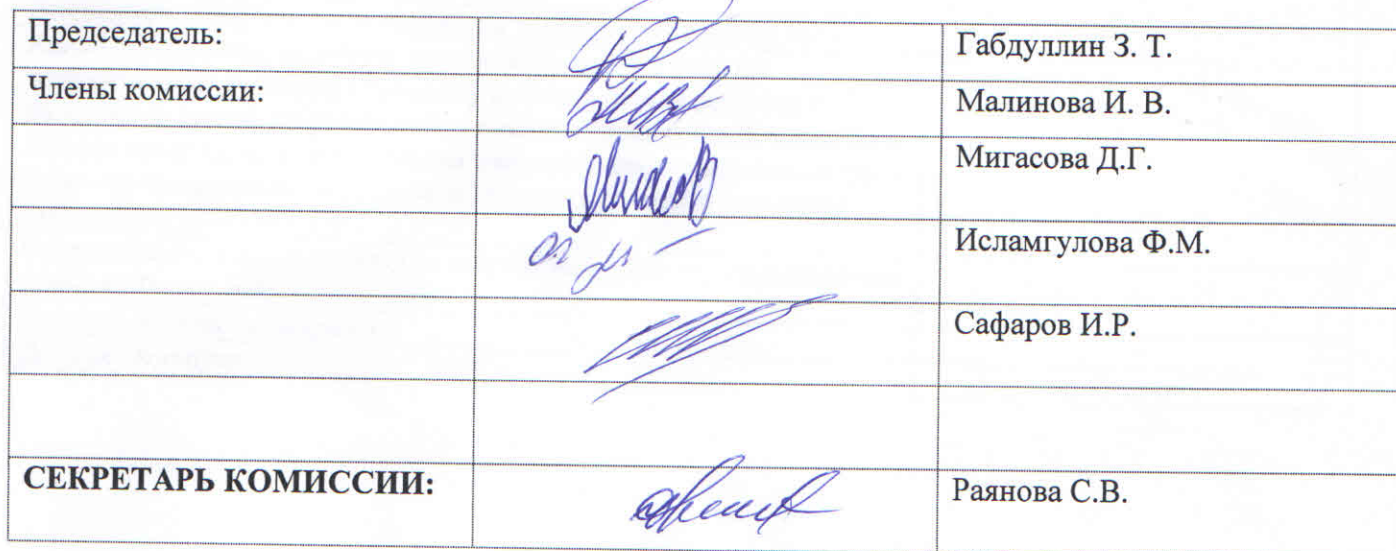 Председатель: Габдуллин З. Т.
Члены комиссии: Малинова И. В.
Мигасова Д.Г.
Исламгулова Ф.М.
Сафаров И.Р.
СЕКРЕТАРЬ КОМИССИИ: Раянова С.В.